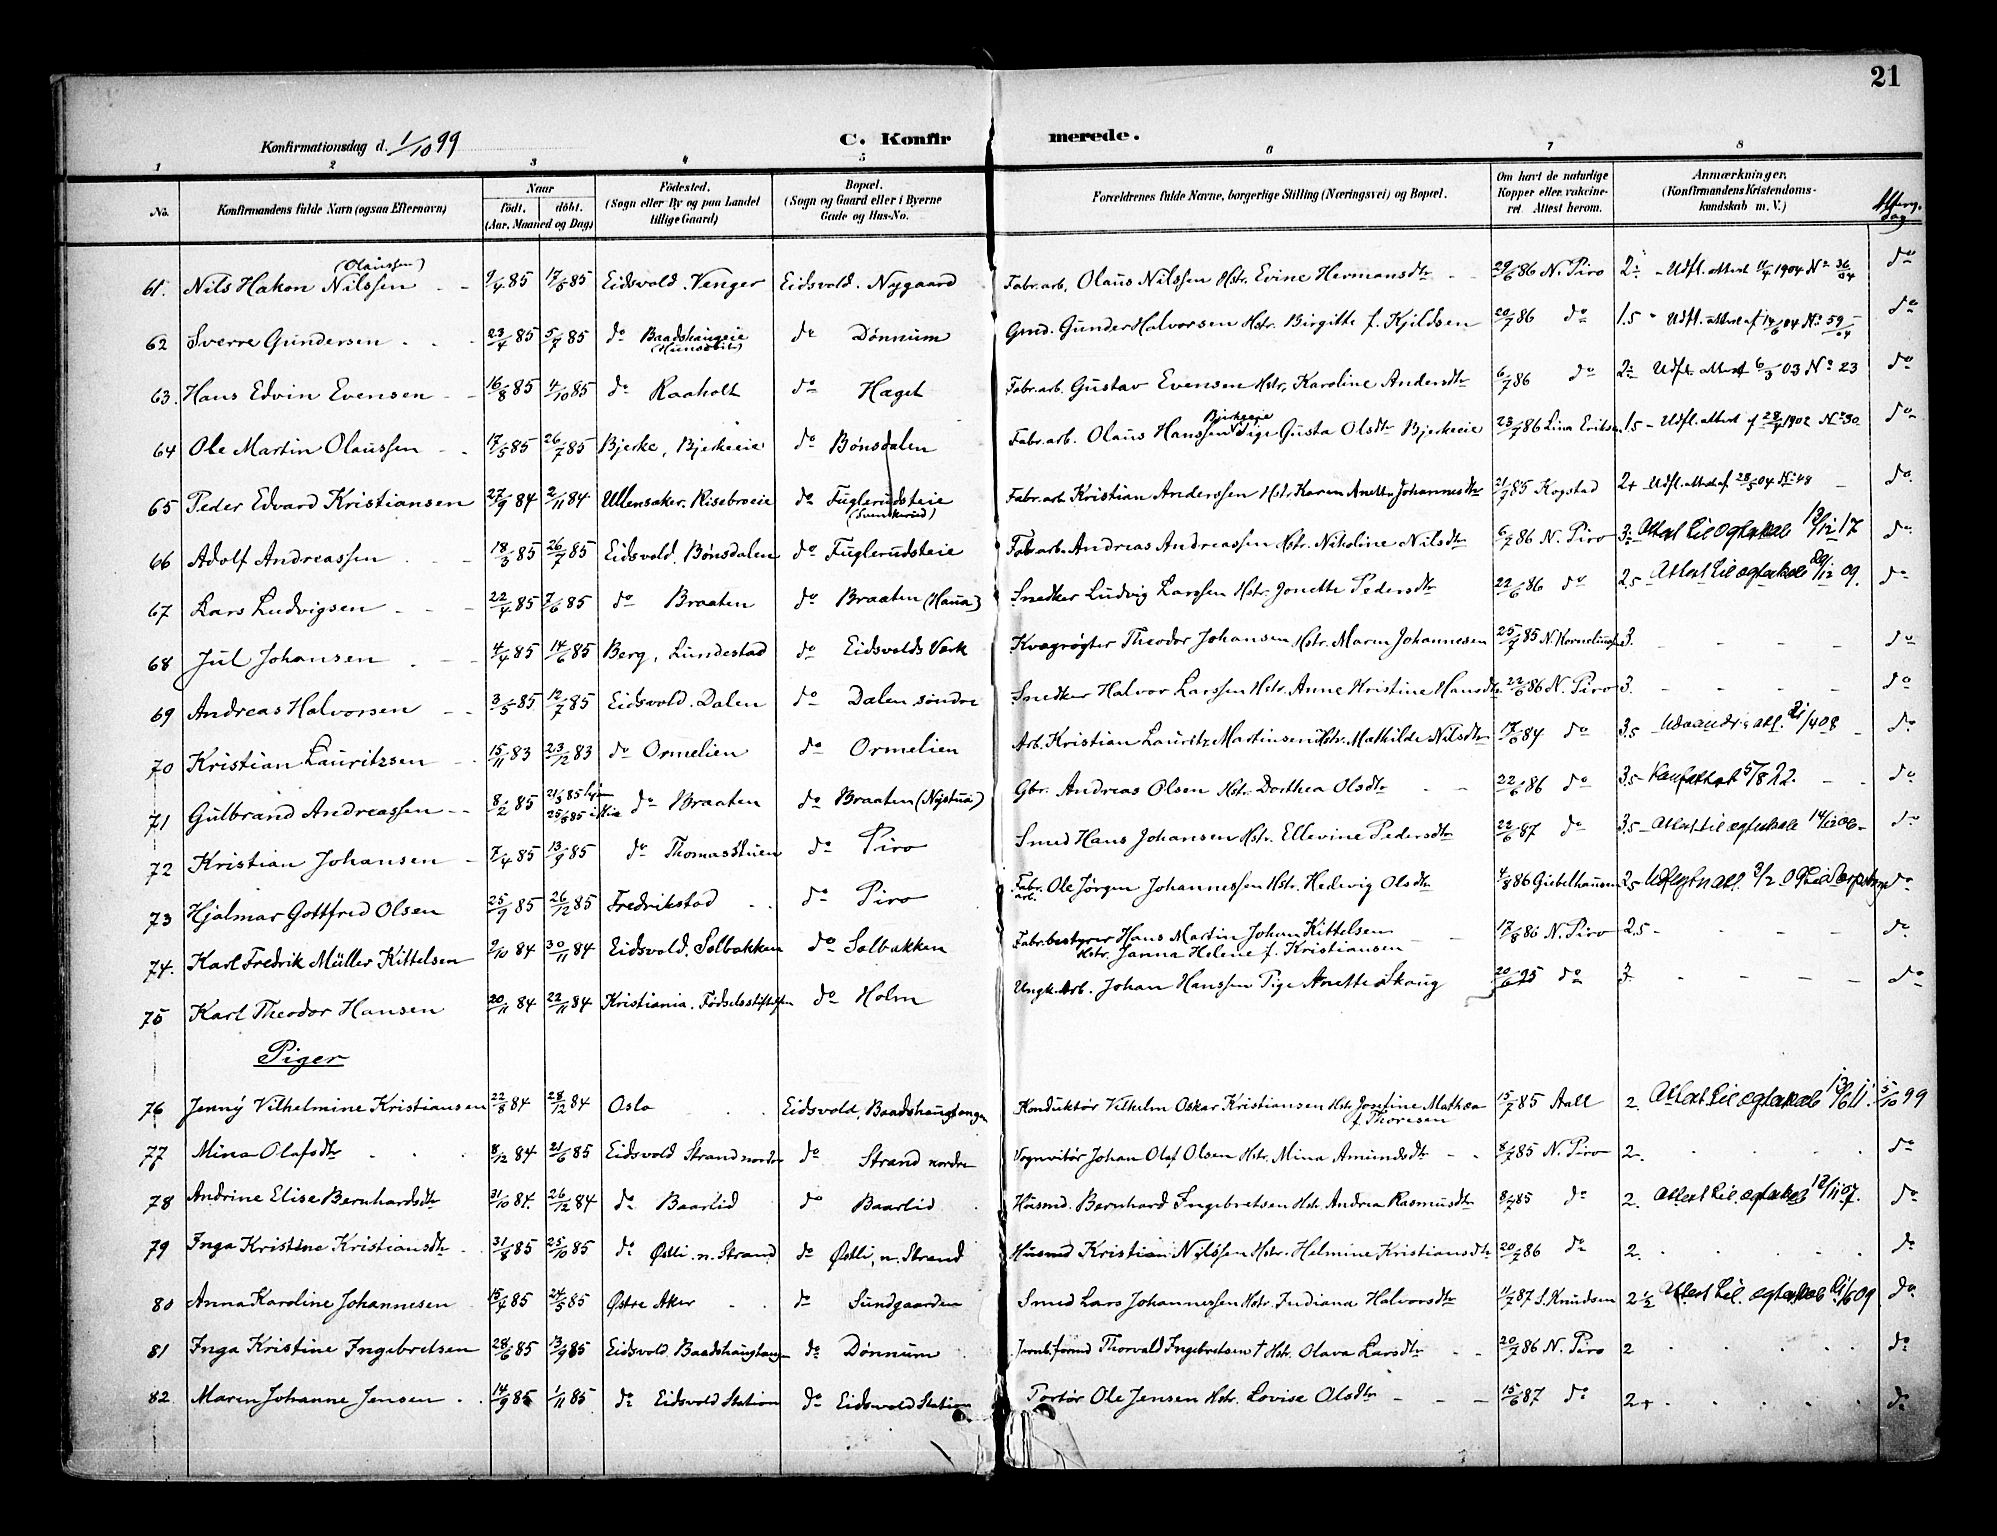 21
Konfirmationsdag d. 1/10 99
C. Konfirmerede.
1 2 3 4 5 6 7 8
No. Konfirmandens fulde Navn (ogsaa Efternavn) Naar født, døbt. (Aar, Maaned og Dag) Fødested. (Sogn eller By og paa Landet tillige Gaard) Bopæl. (Sogn og Gaard eller i Byerne Gade og Hus-No.) Forældrenes fulde Navne, borgerlige Stilling (Næringsvei) og Bopæl. Om havt de naturlige Kopper eller vakcineret. Attest herom. Anmærkninger. (Konfirmandens Kristendomskundskab m. V.)
61. Nils Hakon Nilssen (Olaussen) 9/4 85 17/5 85 Eidsvold. Venger Eidsvold. Nygaard Fabr.arb. Olaus Nilssen Hstr. Evine Hermansdtr 29/6 86 N. Piro 2÷ Udfl. attest 11/4 1904 No 36/04 do
62 Sverre Gundersen 23/4 85 5/7 85 do Baadshaugeie do Dønnum Gmd. Gunder Halvorsen Hstr. Birgitte f. Kjeldsen 20/7 86 do 1.5 Udfl. attest af 14/6 04 No 59/04 do
63. Hans Edvin Evensen 16/8 85 4/10 85 do Raaholt do Haget Fabr.arb. Gustav Evensen Hstr. Karoline Andersdtr 6/7 86 do 2÷ Udfl. attest 6/3 03 No 23 do
64 Ole Martin Olaussen 17/5 85 26/7 85 Bjerke, Bjerkeeie do Bønsdalen Fabr.arb. Olaus Hanssen Bjerkeeie Pige Gusta Olsdtr Bjerkeeie 23/7 86 Lina Eriksen 1.5 Udfl. attest af 28/4 1902 No 30 do
65 Peder Edvard Kristiansen 27/9 84 2/11 84 Ullensaker. Risebroeie do Fuglerudsteie (Svenskerud) Fabr.arb. Kristian Anderssen Hstr. Karen Anette Johannesdtr 21/7 85 Kopstad 2+ Udfl. attest af 28/5 04 No 48 do
66 Adolf Andreassen 18/3 85 26/7 85 Eidsvold. Bønsdalen do Fuglerudsteie Fabr.arb. Andreas Andreassen Hstr. Nikoline Nilsdtr 6/7 86 N. Piro 3÷ Attest til Ægteskab 13/12 17 do
67 Lars Ludvigsen 22/4 85 7/6 85 do Braaten do Braaten (Haua) Snedker Ludvig Larssen Hstr. Jonette Pedersdtr 22/6 86 do 2.5 Attest til ægteskab 20/12 09. do
68 Jul Johansen 4/4 85 14/6 85 Berg, Lundestad do Eidsvolds Værk Kvægrøgter Theodor Johansen Hstr. Maren Johannesen 25/7 85 N. Korneliussen 3. do
69 Andreas Halvorsen 3/5 85 12/7 85 Eidsvold. Dalen do Dalen søndre Snedker Halvor Larssen Hstr. Anne Kristine Hansdtr 22/6 86 N. Piro 3. do
70 Kristian Lauritzsen 15/11 83 23/12 83 do Ormelien do Ormelien Arb. Kristian Lauritz Martinsen Hstr. Mathilde Nilsdtr 17/6 84 do 3.5 Udvandr. att. 21/4 08 do
71 Gulbrand Andreassen 8/2 85 21/3 85 hj. 25/5 85 i Kir. do Braaten do Braaten (Nystua) Gbr. Andreas Olsen Hstr. Dorthea Olsdtr 22/6 86 do 3.5 Konf.attest 5/8 22. do
72 Kristian Johansen 7/4 85 13/9 85 do Thomasstuen do Piro Smed Hans Johansen Hstr. Ellevine Pedersdtr 22/6 87 do 3.5 Attest til ægteskab 14/12 06 do
73 Hjalmar Gottfred Olsen 25/9 85 26/12 85 Fredrikstad do Piro Fabr. arb. Ole Jørgen Johannessen Hstr. Hedvig Olsdtr 4/8 86 Giebelhausen 2.5 do
74. Karl Fredrik Müller Kittelsen 9/10 84 30/11 84 Eidsvold. Solbakken do Solbakken Fabr.bestyrer Hans Martin Johan Kittelsen Hstr. Janna Helene f. Kristiansen 17/8 86 N. Piro 2,5 do
75 Karl Theodor Hansen 20/11 84 22/11 84 Kristiania. Fødselsstiftelsen do Holm Ungk. Arb. Johan Hanssen Pige Anette Skaug 20/6 95 do 3 do
Piger
76 Jenny Vilhelmine Kristiansen 22/8 84 28/12 84 Oslo Eidsvold, Baadshaugtangen Konduktør Vilhelm Oskar Kristiansen Hstr. Josefine Mathea f. Thoresen 15/7 85 Aall 2. Attest til ægteskab 13/6 11. 5/10 99
77 Mina Olafsdtr 8/12 84 21/6 85 Eidsvold Strand nordre do Strand nordre Vognvisitør Johan Olaf Olsen Hstr. Mina Amundsdtr 8/7 85 N. Piro 2. do
78 Andrine Elise Bernhardsdtr 31/10 84. 26/12 84 do Baarlid do Baarlid Husmd. Bernhard Ingebretsen Hstr. Andrea Rasmusdtr 8/7 85 do 2. Attest til ægteskab 12/11 07. do
79 Inga Kristine Kristiansdtr 31/8 85 25/10 85 do Østli n. Strand do Østli, n. Strand Husmd Kristian Nilssen Hstr. Helmine Kristiansdtr 20/7 86 do 2. do
80 Anna Karoline Johannesen 15/4 85 24/5 85 Østre Aker do Sundgaarden Smed Lars Johannessen Hstr. Indiana Halvorsdtr 1/7 87 S. Knudsen 2½ Attest til ægteskab 21/6 09 do
81 Inga Kristine Ingebretsen 28/6 85 13/9 85 Eidsvold. Baadshaugtangen do Dønnum Thorvald Ingebretsen † Hstr. Olava Larsdtr 20/7 86 N. Piro 2 do
82. Maren Johanne Jensen 14/9 85 1/11 85 do Eidsvold Station do Eidsvold Station Portør Ole Jensen Hstr. Lovise Olsdtr 15/6 87 do 2+ do